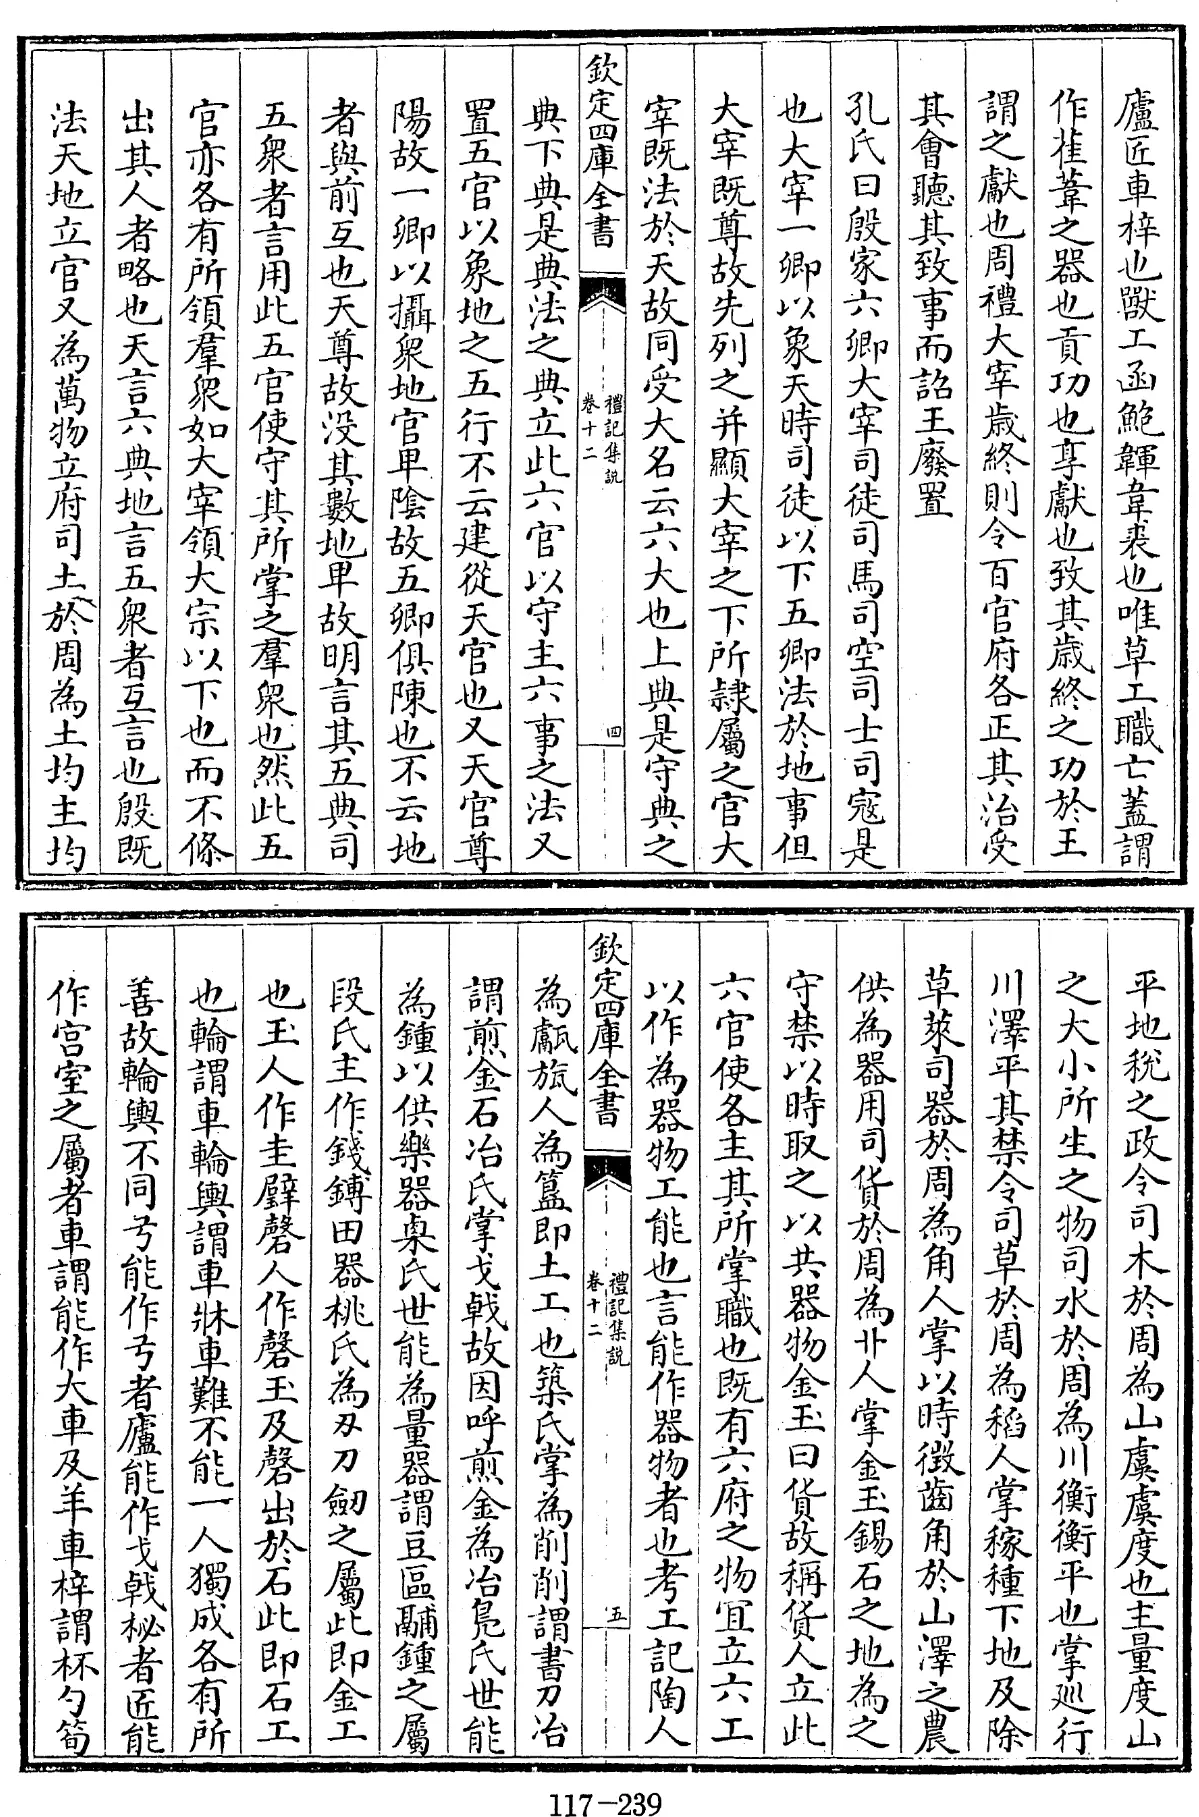 廬匠車梓也獸工函鮑韗韋裘也唯草工職亡蓋謂
作萑葦之器也貢功也享獻也致其歲終之功於王
謂之獻也周禮大宰歲終則令百官府各正其治受
其會聽其致事而詔王廢置
孔氏曰殷家六卿大宰司徒司馬司空司士司寇是
也大宰一卿以象天時司徒以下五卿法於地事但
大宰既尊故先列之并顯大宰之下所隷屬之官大
宰既法於天故同受大名云六大也上典是守典之
欽定四庫全書
禮記集說
卷十二
四
典下典是典法之典立此六官以守主六事之法又
置五官以象地之五行不云建從天官也又天官尊
陽故一卿以攝衆地官卑陰故五卿俱陳也不云地
者與前互也天尊故没其數地卑故明言其五典司
五衆者言用此五官使守其所掌之羣衆也然此五
官亦各有所領羣衆如大宰領大宗以下也而不條
出其人者略也天言六典地言五衆者互言也殷既
法天地立官又為萬物立府司土於周為土均主均
平地稅之政令司木於周為山虞虞度也主量度山
之大小所生之物司水於周為川衡衡平也掌廵行
川澤平其禁令司草於周為稻人掌稼種下地及除
草萊司器於周為角人掌以時徵齒角於山澤之農
供為器用司貨於周為丱人掌金玉錫石之地為之
守禁以時取之以共器物金玉曰貨故稱貨人立此
六官使各主其所掌職也既有六府之物宜立六工
以作為器物工能也言能作器物者也考工記陶人
欽定四庫全書
禮記集說
卷十二
五
為甗旊人為簋即土工也築氏掌為削削謂書刀冶
謂煎金石冶氏掌戈戟故因呼煎金為冶鳧氏世能
為鍾以供樂器㮚氏世能為量器謂豆區鬴鍾之屬
段氏主作錢鎛田器桃氏為刄刀劒之屬此即金工
也玉人作圭璧磬人作磬玉及磬出於石此即石工
也輪謂車輪輿謂車牀車難不能一人獨成各有所
善故輪輿不同弓能作弓者廬能作戈戟柲者匠能
作宫室之屬者車謂能作大車及羊車梓謂杯勺筍
117-239